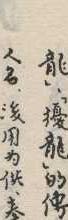 龍」、「擾龍」的傳
人名，後用为供奉